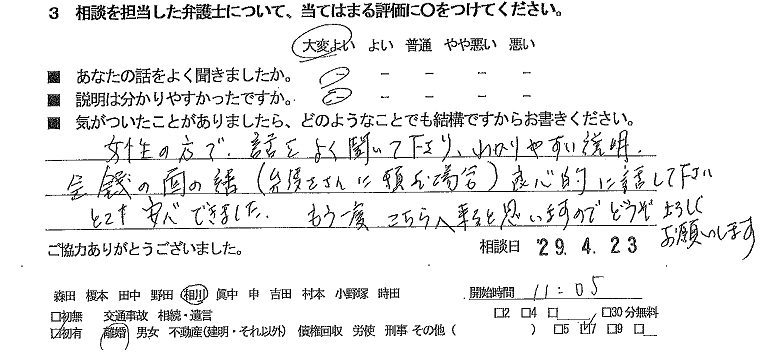 3 相談を担当した弁護士について、当てはまる評価に○をつけてください。
大変よい よい 普通 やや悪い 悪い
■ あなたの話をよく聞きましたか。 － － － －
■ 説明は分かりやすかったですか。 － － － －
■ 気がついたことがありましたら、どのようなことでも結構ですからお書きください。
女性の方で、話をよく聞いて下さり、わかりやすい説明、
金銭の面の話（弁護士さんに頼む場合）良心的に話して下さい
とても安心できました。 もう一度こちらへ来ると思いますのでどうぞよろしく
お願いします
ご協力ありがとうございました。 相談日 '29. 4. 23
森田 榎本 田中 野田 相川 眞中 申 吉田 村本 小野塚 時田 開始時間 11:05
□初無 交通事故 相続・遺言 □2 □4 □ □30分無料
☑初有 離婚 男女 不動産(建明・それ以外) 債権回収 労使 刑事 その他 ( ) □5 ☑7 □9 □